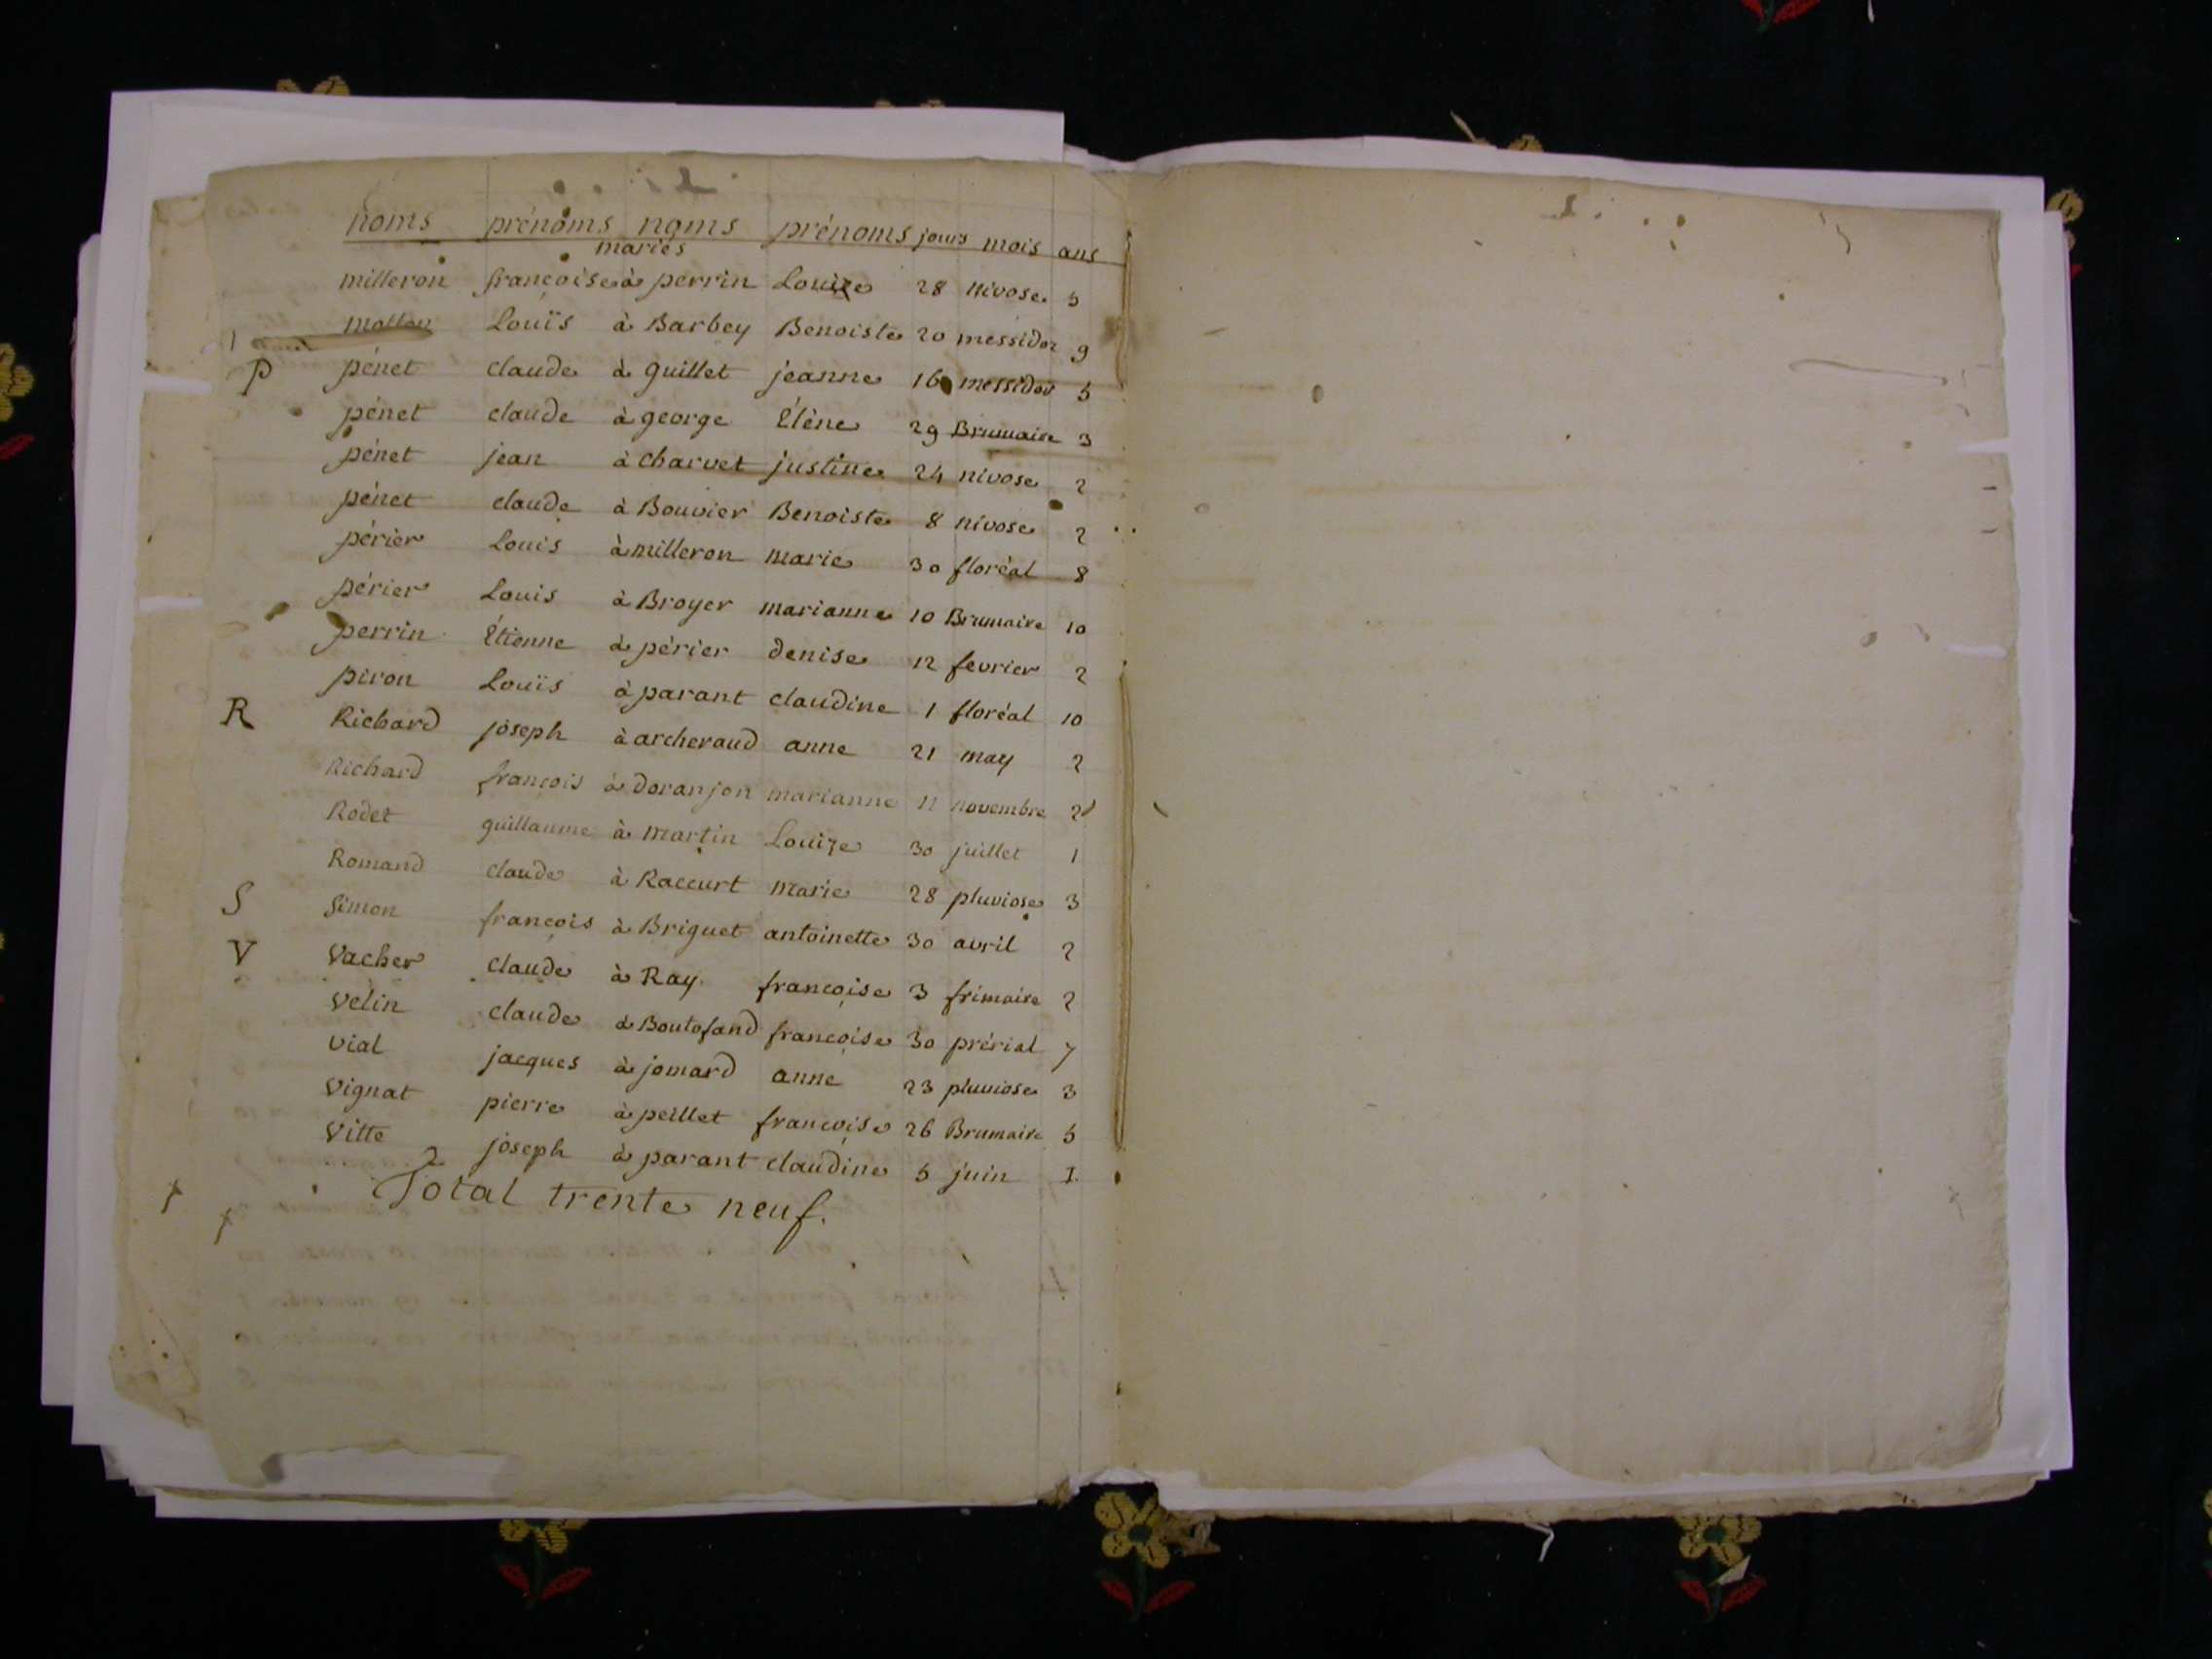 noms prénoms noms prénoms jours mois ans
mariés
milleron françoise à perrin Louize 28 nivose 5
mollon Louïs à Barbey Benoiste 20 messidor 9
P pénet claude à guillet jeanne 16 messidor 5
pénet claude à george Élène 29 Brumaire 3
pénet jean à charvet justine 24 nivose 2
pénet claude à Bouvier Benoiste 8 nivose 2
périer Louis à milleron marie 30 floréal 8
périer Louis à Broyer marianne 10 Brumaire 10
perrin Étienne à périer denise 12 fevrier 2
piron Louïs à parant claudine 1 floréal 10
R Richard joseph à archeraud anne 21 may 2
Richard françois à doranjon marianne 11 novembre 2
Rodet guillaume à martin Louize 30 juillet 1
Romand claude à Raccurt marie 28 pluviose 3
S Simon françois à Briguet antoinette 30 avril 2
V Vacher claude à Ray françoise 3 frimaire 2
Velin claude à Boutofand françoise 30 prérial 7
vial jacques à jomard anne 23 pluviose 3
Vignat pierre à peillet françoise 26 Brumaire 5
Vitte joseph à parant claudine 5 juin 1
Total trente neuf.